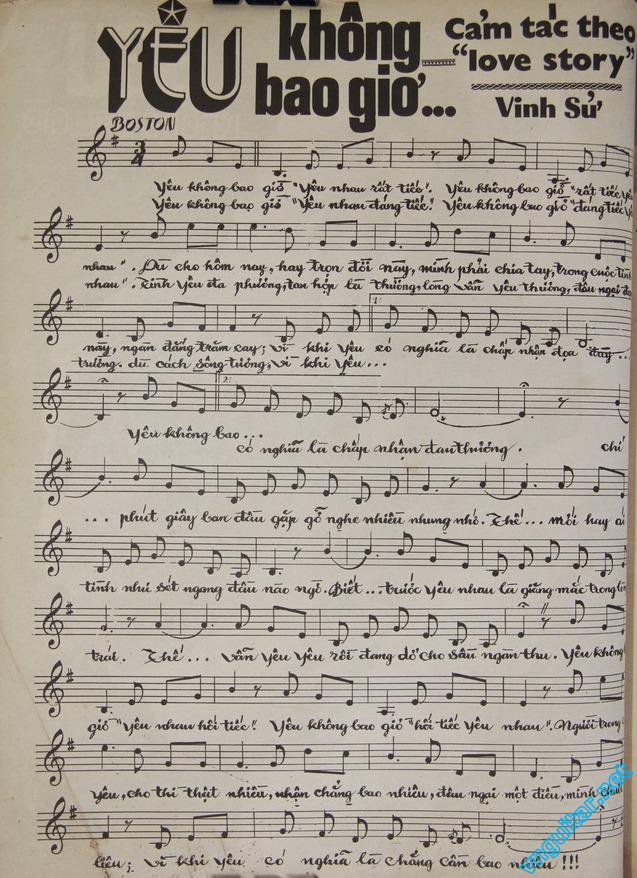 YÊU không bao giờ...
Cảm tác theo
"love story"
Vinh Sử
BOSTON
3/4
Yêu không bao giờ "Yêu nhau rất tiếc". Yêu không bao giờ "rất tiếc
Yêu không bao giờ "Yêu nhau đáng tiếc". Yêu không bao giờ "đáng tiếc
nhau". Dù cho hôm nay, hay trọn đời này, mình phải chia tay, trong cuộc tình
nhau". Tình yêu đa phương, tan hợp là thường, lòng vẫn yêu thương, đâu ngại
này, ngàn đắng trăm cay; Vì khi yêu có nghĩa là chấp nhận đọa đày...
trường. dù cách sông tương, vì khi yêu...
1.
2.
Yêu không bao...
có nghĩa là chấp nhận đau thương. chỉ
... phút giây ban đầu gặp gỡ nghe nhiều nhung nhớ. Thế... mới hay ái
tình như sét ngang đầu nào ngờ. Biết... trước yêu nhau là giăng mắc trong
trái. Thế... vẫn yêu yêu rồi đang dở cho sầu ngàn thu. Yêu không
giờ "yêu nhau hối tiếc". Yêu không bao giờ "hối tiếc yêu nhau". Người trong
yêu, cho thì thật nhiều, nhận chẳng bao nhiêu, đâu ngại một điều, mình
liêu; Vì khi yêu có nghĩa là chẳng cần bao nhiêu!!!
vnguitar.net